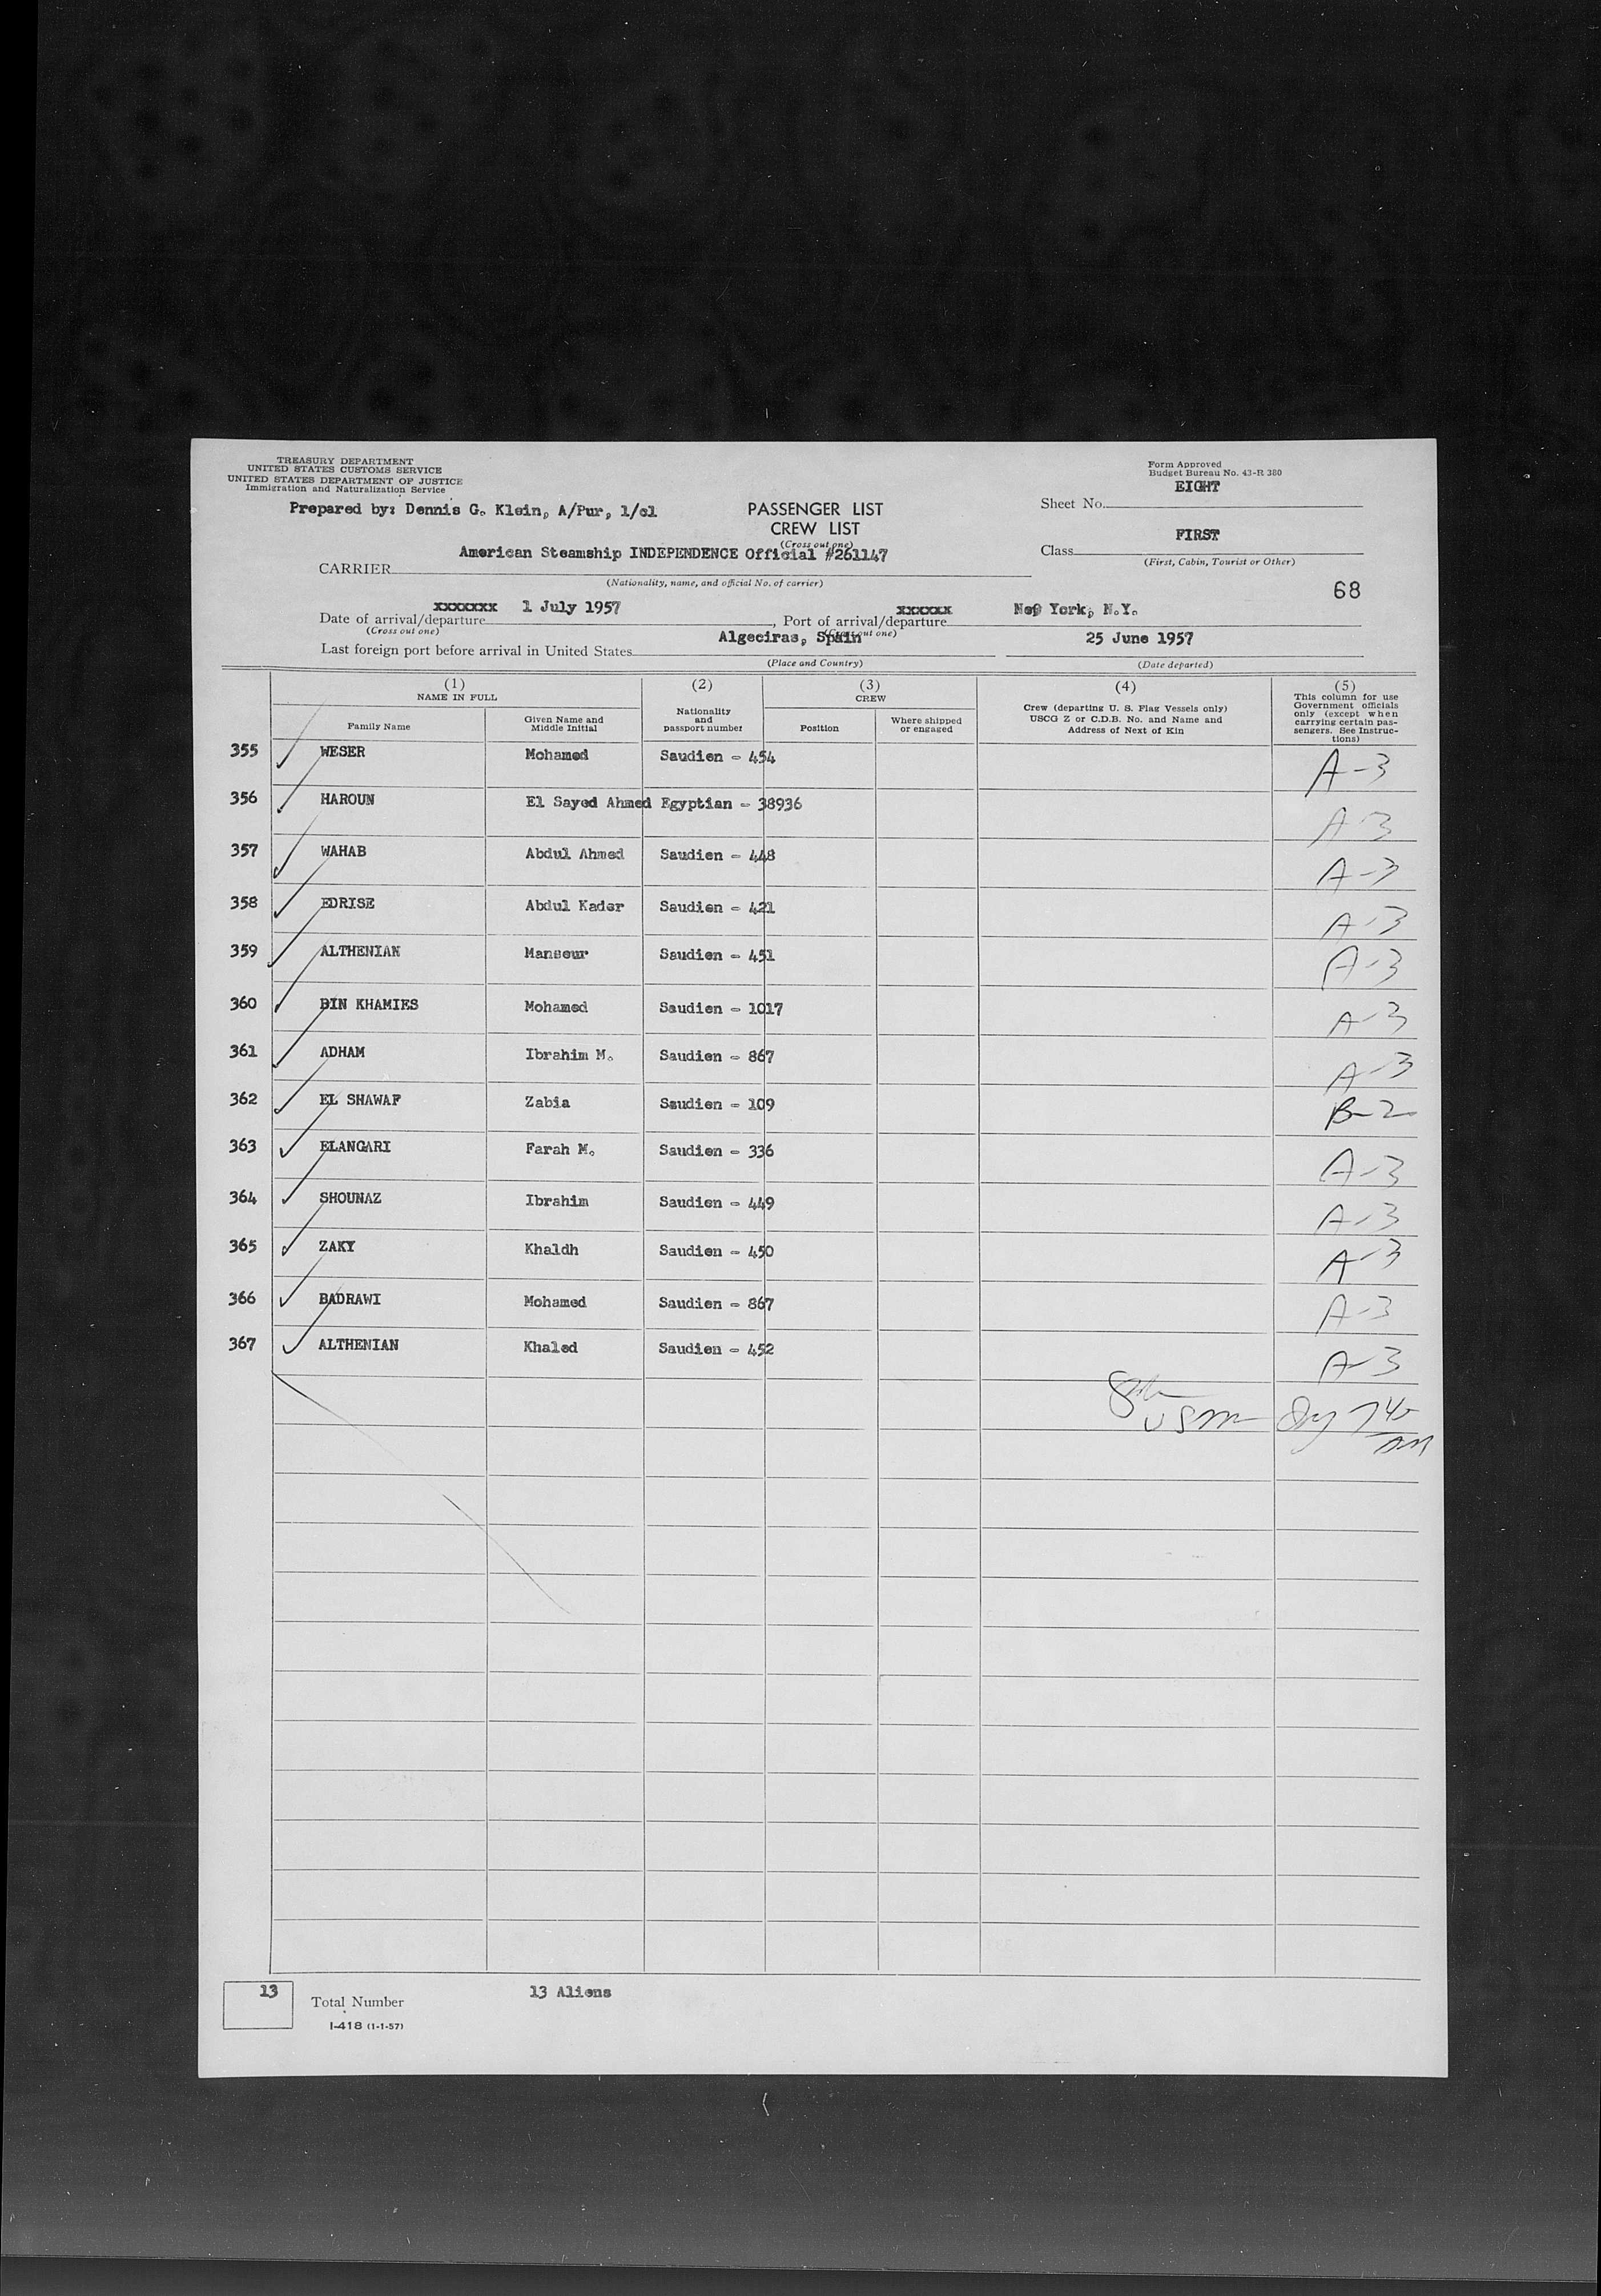 TREASURY DEPARTMENT
UNITED STATES CUSTOMS SERVICE
UNITED STATES DEPARTMENT OF JUSTICE
Immigration and Naturalization Service
Form Approved
Budget Bureau No. 43-R 380
Prepared by: Dennis G. Klein, A/Pur, 1/cl
PASSENGER LIST
CREW LIST
(Cross out one)
Sheet No. EIGHT
American Steamship INDEPENDENCE Official #261147
CARRIER
(Nationality, name, and official No. of carrier)
Class FIRST
(First, Cabin, Tourist or Other)
68
xxxxxxx 1 July 1957 xxxxxx New York, N.Y.
Date of arrival/departure , Port of arrival/departure
(Cross out one) (Cross out one)
Algeciras, Spain 25 June 1957
Last foreign port before arrival in United States
(Place and Country) (Date departed)
(1) NAME IN FULL
Family Name
Given Name and Middle Initial
(2) Nationality and passport number
(3) CREW
Position
Where shipped or engaged
(4) Crew (departing U. S. Flag Vessels only) USCG Z or C.D.B. No. and Name and Address of Next of Kin
(5) This column for use Government officials only (except when carrying certain passengers. See Instructions)
355 WESER Mohamed Saudien - 454 A-3
356 HAROUN El Sayed Ahmed Egyptian - 38936 A-3
357 WAHAB Abdul Ahmed Saudien - 448 A-3
358 EDRISE Abdul Kader Saudien - 421 A-3
359 ALTHENIAN Mansour Saudien - 451 A-3
360 BIN KHAMIES Mohamed Saudien - 1017 A-3
361 ADHAM Ibrahim M. Saudien - 867 A-3
362 EL SHAWAF Zabia Saudien - 109 B-2
363 ELANGARI Farah M. Saudien - 336 A-3
364 SHOUNAZ Ibrahim Saudien - 449 A-3
365 ZAKY Khaldh Saudien - 450 A-3
366 BADRAWI Mohamed Saudien - 867 A-3
367 ALTHENIAN Khaled Saudien - 452 A-3
13 Total Number 13 Aliens
I-418 (1-1-57)